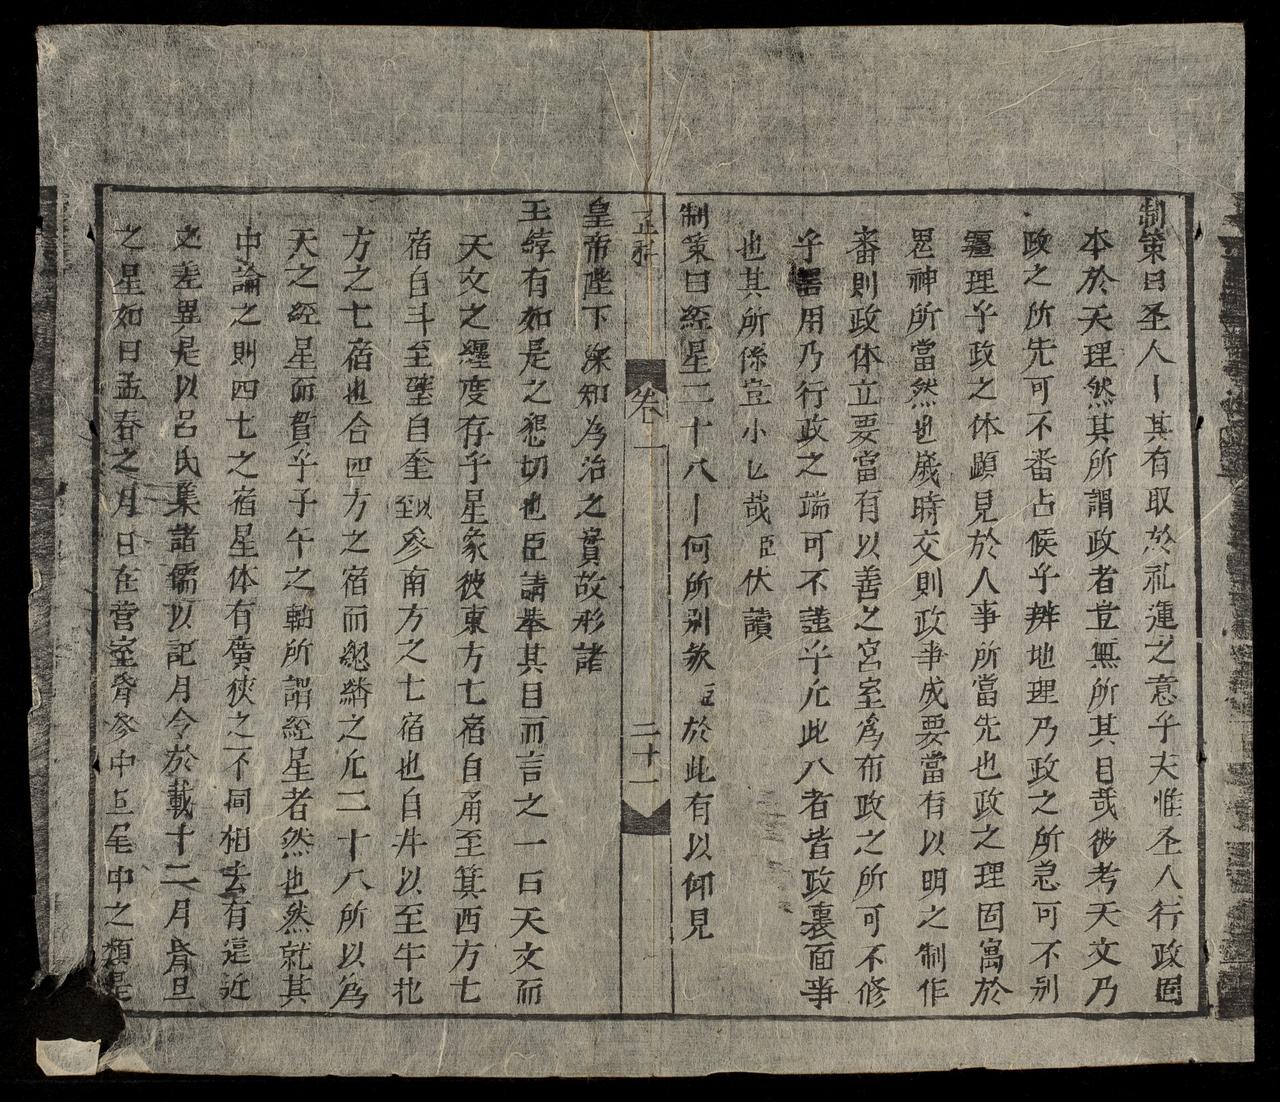 制策曰圣人〡其有取於礼運之意乎夫惟圣人行政固
本於天理然其所謂政者豈無所其目哉彼考天文乃
政之所先可不審占候乎辨地理乃政之所急可不别
疆理乎政之体顕見於人事所當先也政之理固寓於
鬼神所當然也歲時交則政事成要當有以明之制作
審則政体立要當有以善之宮室為布政之所可不修
乎器用乃行政之端可不謹乎凢此八者皆政裏面事
也其所係豈小〻哉臣伏讀
制策曰經星二十八〡何所别欤臣於此有以仰見
正科 卷一 二十一
皇帝陛下深知為治之實故形諸
玉綍有如是之懇切也臣請舉其目而言之一曰天文而
天文之纏度存乎星象彼東方七宿自角至箕西方七
宿自斗至壁自奎以至參南方之七宿也自井以至牛北
方之七宿也合四方之宿而總緒之凢二十八所以為
天之經星而貫乎子午之軸所謂經星者然也然就其
中論之則四七之宿星体有廣狹之不同相去有逼近
之差異是以呂氏集諸儒以記月令於載十二月昏旦
之星如曰孟春之月日在營室昏參中旦尾中之類是